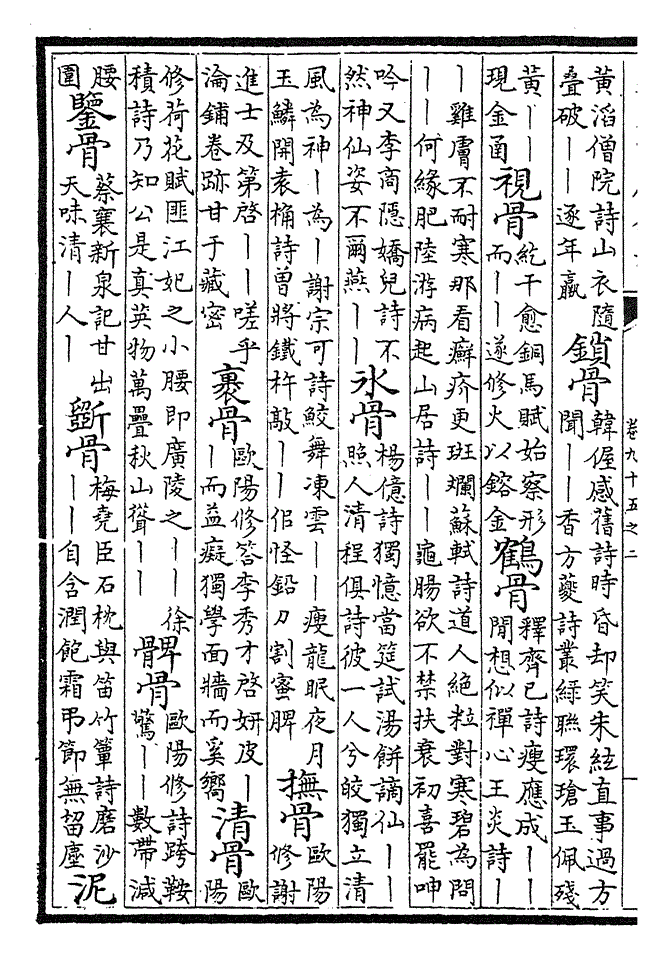 黃滔僧院詩山衣隨
疊破——逐年羸
鎖骨
韓偓感舊詩時昏却笑朱絃直事過方
聞——香方夔詩叢綠聯環瑲玉佩殘
黃——
現金函
視骨
紇干愈銅馬賦始察形
而——遂修火以鎔金
鶴骨
釋齊已詩瘦應成——
閒想似禪心王炎詩—
—雞膚不耐寒那看癬疥更斑斕蘇軾詩道人絕粒對寒碧為問
——何緣肥陸游病起山居詩——龜腸欲不禁扶衰初喜罷呻
吟又李商隱嬌兒詩不
然神仙姿不爾燕——
氷骨
楊億詩獨憶當筵試湯餅謫仙——
照人清程俱詩彼一人兮皎獨立清
風為神—為—謝宗可詩鮫舞凍雲——瘦龍眠夜月
玉鱗開袁桷詩曾將鐵杵敲——但怪鉛刀割蜜脾
撫骨
歐陽
修謝
進士及第啓——嗟乎
淪鋪卷跡甘于藏密
裹骨
歐陽修答李秀才啓妍皮—
—而益癡獨學面牆而奚嚮
清骨
歐
陽
修荷花賦匪江妃之小腰即廣陵之——徐
積詩乃知公是真英物萬疊秋山聳——
髀骨
歐陽修詩跨鞍
驚——數帶減
腰
圍
鑒骨
蔡襄新泉記甘出
天味清—人—
斷骨
梅堯臣石枕與笛竹簟詩磨沙
——自含潤飽霜弔節無留塵
泥
卷九十五之二